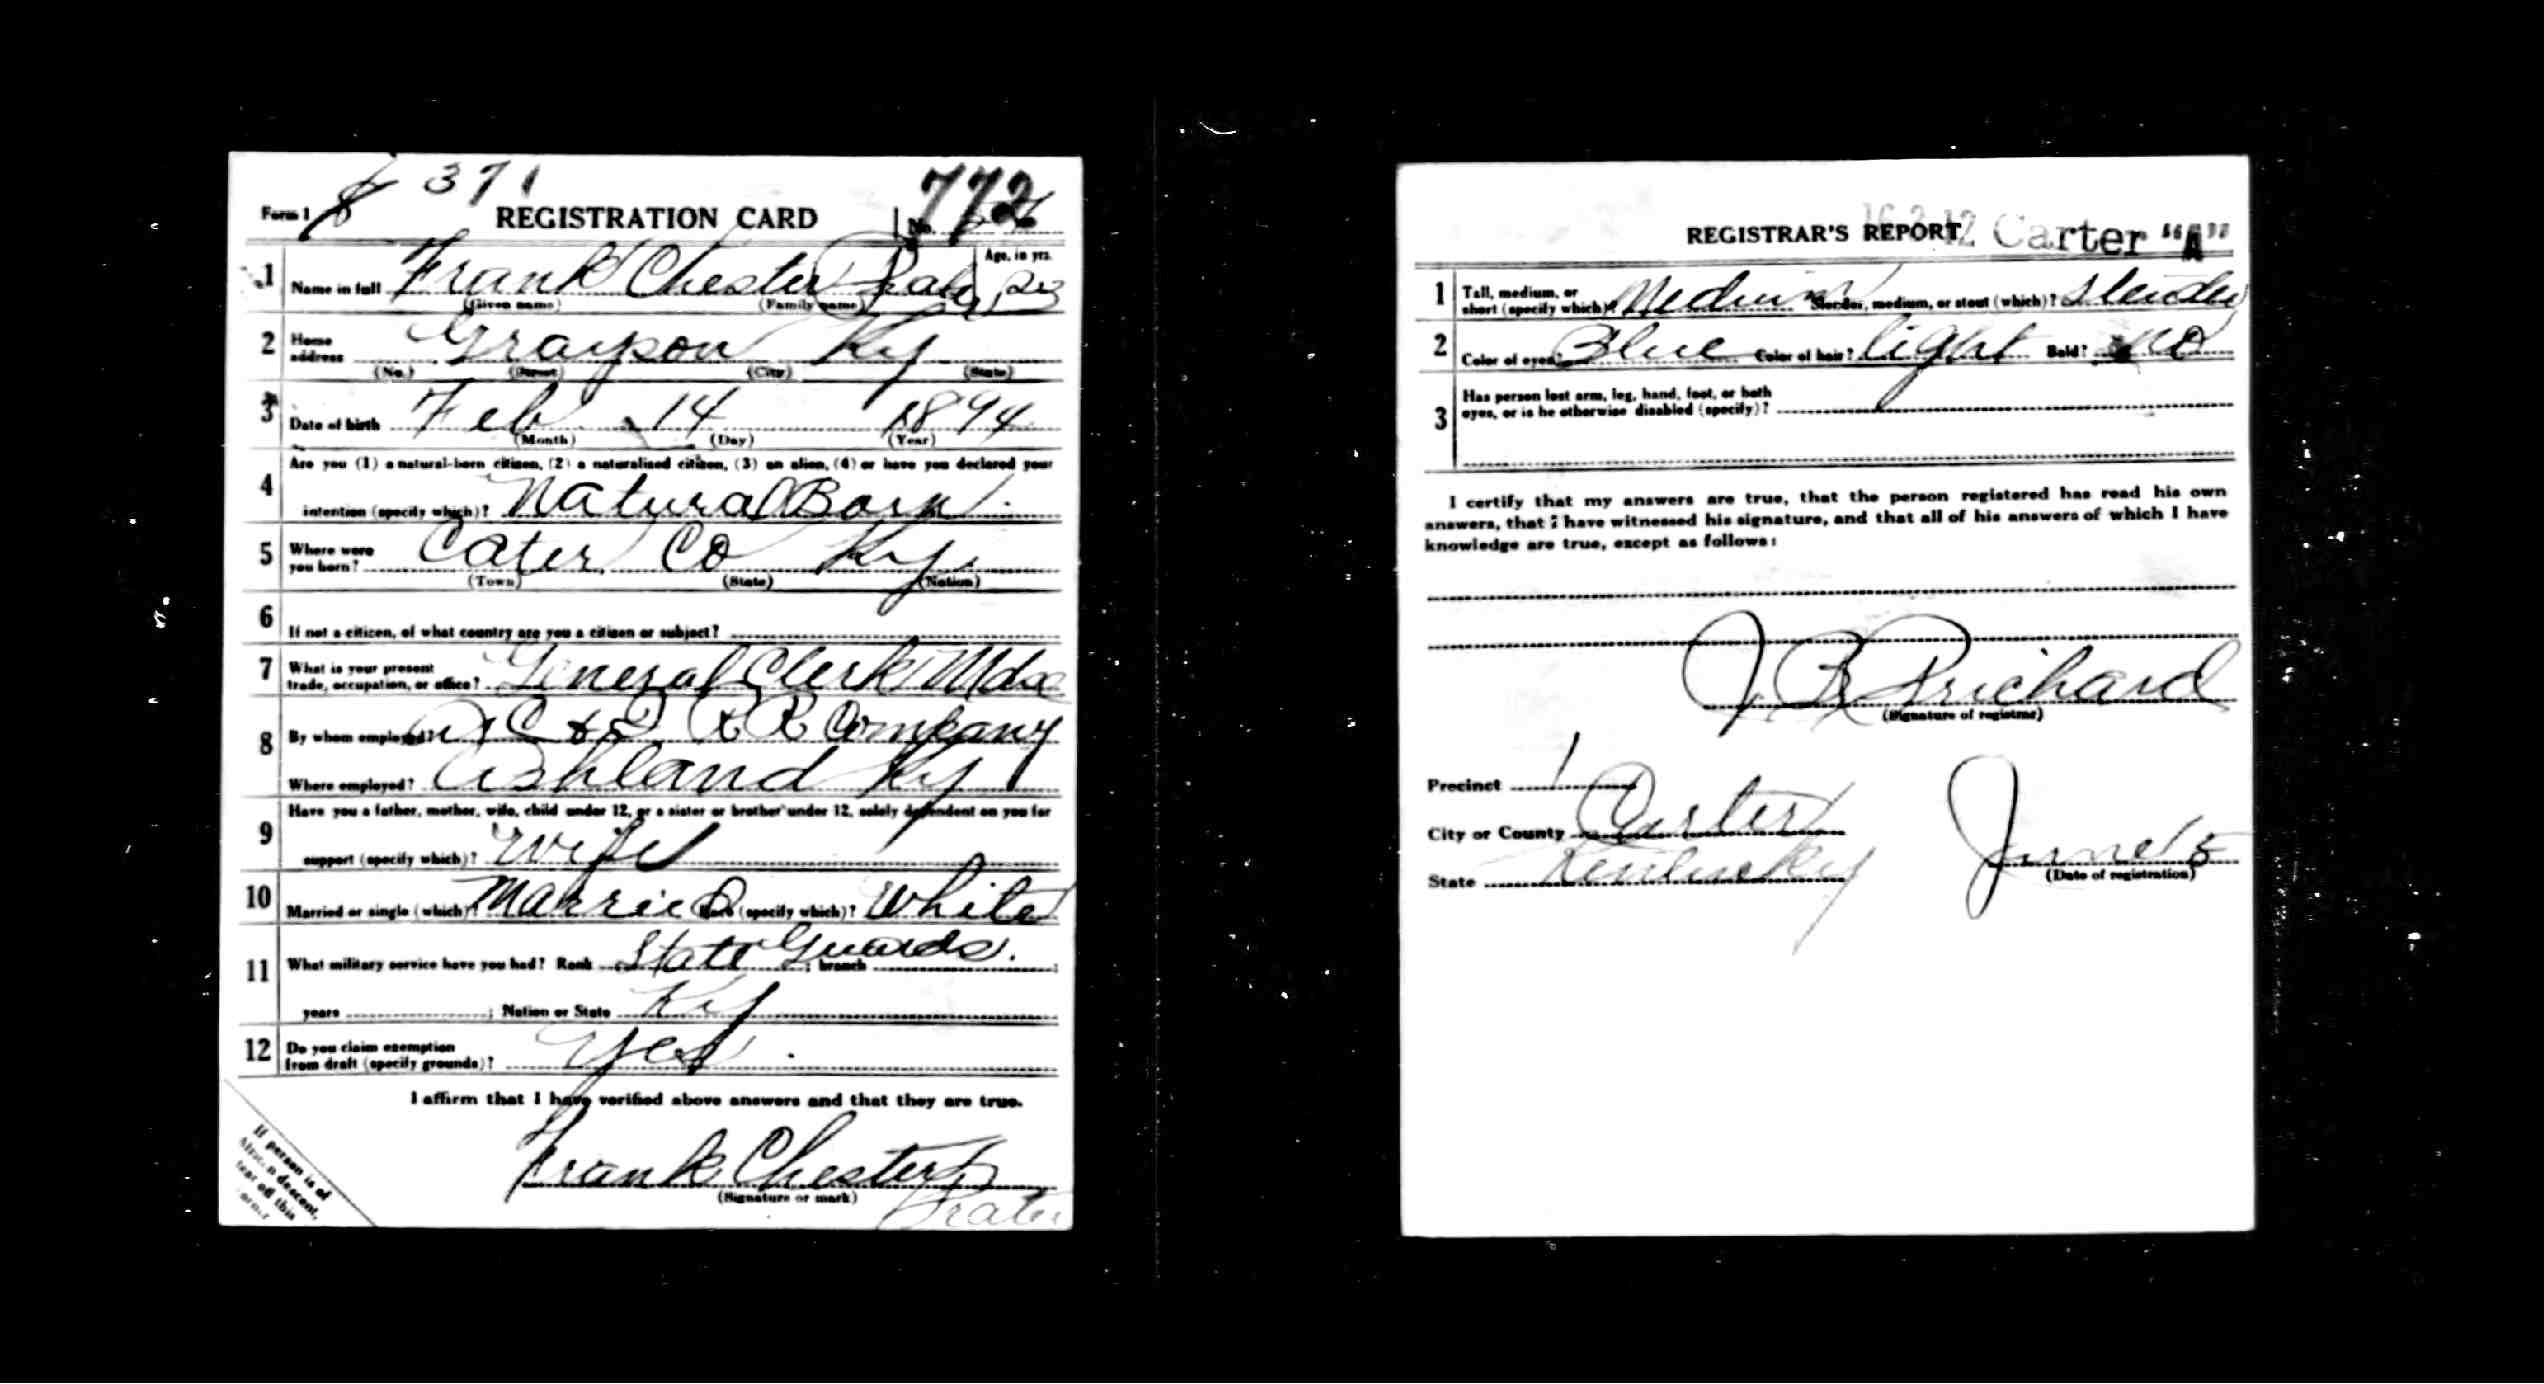 371
772
Form 1 REGISTRATION CARD No.
1 Name in full Frank Chester Prater Age, in yrs. 23
(Given name) (Family name)
2 Home address Grayson Ky
(No.) (Street) (City) (State)
3 Date of birth Feb 14 1894
(Month) (Day) (Year)
4 Are you (1) a natural-born citizen, (2) a naturalized citizen, (3) an alien, (4) or have you declared your
intention (specify which)? Natural Born
5 Where were you born? Cater Co Ky.
(Town) (State) (Nation)
6 If not a citizen, of what country are you a citizen or subject?
7 What is your present trade, occupation, or office? General Clerk Mdse
8 By whom employed? C & O R R Company
Where employed? Ashland Ky
9 Have you a father, mother, wife, child under 12, or a sister or brother under 12, solely dependent on you for
support (specify which)? Wife
10 Married or single (which)? Married Race (specify which)? White
11 What military service have you had? Rank State Guards. ; branch ;
years ; Nation or State Ky
12 Do you claim exemption from draft (specify grounds)? Yes.
I affirm that I have verified above answers and that they are true.
Frank Chester
(Signature or mark)
Prater
If person is of
African descent,
tear off this
corner
16-2-12 Carter "A"
REGISTRAR'S REPORT
1 Tall, medium, or short (specify which)? Medium Slender, medium, or stout (which)? Slender
2 Color of eyes? Blue Color of hair? light Bald? No
3 Has person lost arm, leg, hand, foot, or both
eyes, or is he otherwise disabled (specify)?
I certify that my answers are true, that the person registered has read his own
answers, that I have witnessed his signature, and that all of his answers of which I have
knowledge are true, except as follows:
J. B. Prichard
(Signature of registrar)
Precinct 1
City or County Carter
State Kentucky
June 5
(Date of registration)